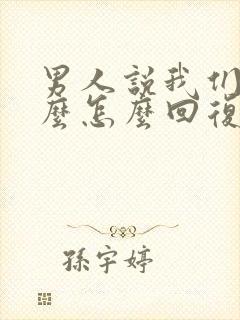 男人說我们
麼怎麼回復
孫宇婷